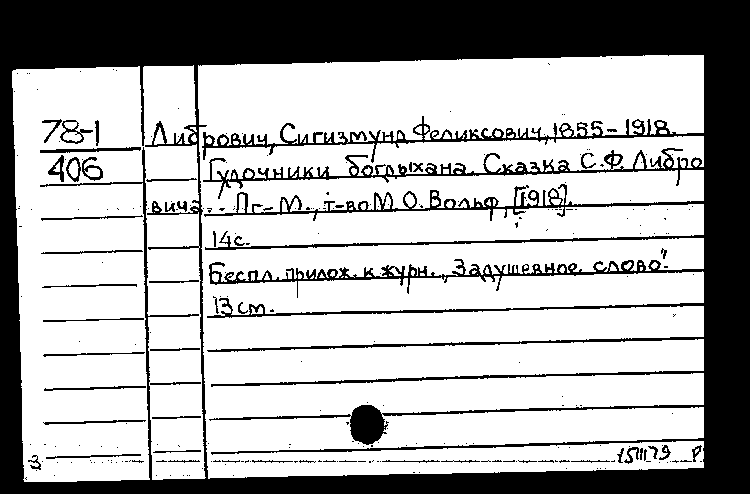 78-1 Либрович, Сигизмунд Феликсович, 1855-1918.
406 Гудочники богдыхана. Сказка С.Ф. Либро
вича. - Пг.-М., т-во М.О. Вольф, [1918].
14с.
Беспл. прилож. к журн. „Задушевное слово".
13см.
3 15III79 Р